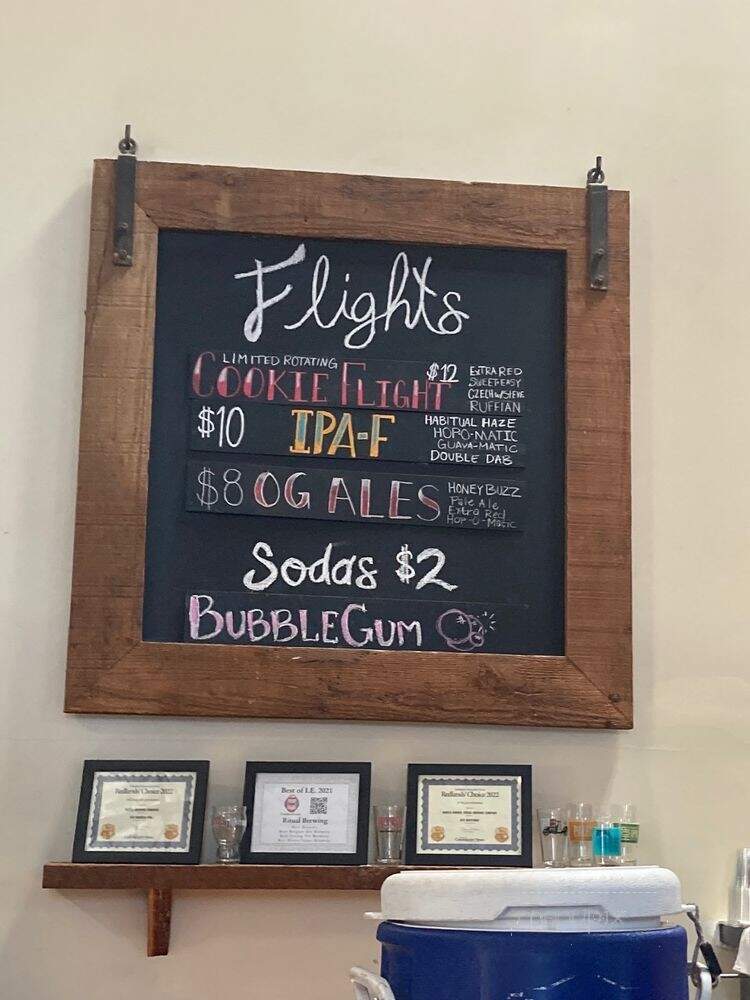 Flights
LIMITED ROTATING
COOKIE FLIGHT $12
EXTRA RED
SWEET-EASY
CZECH w/ STEVE
RUFFIAN
$10 IPA-F
HABITUAL HAZE
HOPO-MATIC
GUAVA-MATIC
DOUBLE DAB
$8 OG ALES
HONEY BUZZ
Pale Ale
Extra Red
Hop-O-Matic
Sodas $2
BUBBLEGUM
Redlands' Choice 2022
Best of I.E. 2021
Ritual Brewing
Redlands' Choice 2022